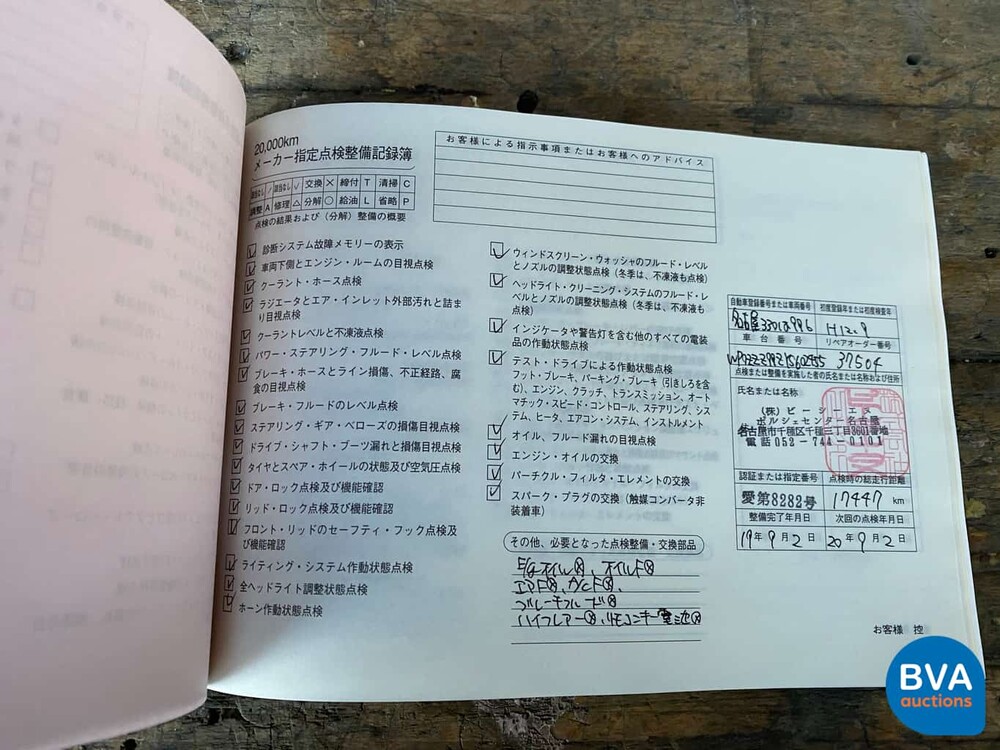 20,000km
メーカー指定点検整備記録簿
交換 × 締付 T 清掃 C
調整 A 修理 △ 分解 ○ 給油 L 省略 P
点検の結果および（分解）整備の概要
お客様による指示事項またはお客様へのアドバイス
診断システム故障メモリーの表示
車両下側とエンジン・ルームの目視点検
クーラント・ホース点検
ラジエータとエア・インレット外部汚れと詰ま
り目視点検
クーラントレベルと不凍液点検
パワー・ステアリング・フルード・レベル点検
ブレーキ・ホースとライン損傷、不正経路、腐
食の目視点検
ブレーキ・フルードのレベル点検
ステアリング・ギア・ベローズの損傷目視点検
ドライブ・シャフト・ブーツ漏れと損傷目視点検
タイヤとスペア・ホイールの状態及び空気圧点検
ドア・ロック点検及び機能確認
リッド・ロック点検及び機能確認
フロント・リッドのセーフティ・フック点検及
び機能確認
ライティング・システム作動状態点検
全ヘッドライト調整状態点検
ホーン作動状態点検
ウィンドスクリーン・ウォッシャのフルード・レベル
とノズルの調整状態点検（冬季は、不凍液も点検）
ヘッドライト・クリーニング・システムのフルード・レ
ベルとノズルの調整状態点検（冬季は、不凍液も
点検）
インジケータや警告灯を含む他のすべての電装
品の作動状態点検
テスト・ドライブによる作動状態点検
フット・ブレーキ, パーキング・ブレーキ（引きしろを含
む）, エンジン, クラッチ, トランスミッション, オート
マチック・スピード・コントロール, ステアリング, シス
テム, ヒータ, エアコン・システム, インストルメント
オイル、フルード漏れの目視点検
エンジン・オイルの交換
パーチクル・フィルタ・エレメントの交換
スパーク・プラグの交換（触媒コンバータ非
装着車）
その他、必要となった点検整備・交換部品
E/gオイル⊗、オイルF⊗
ブレーキフルード⊗
ハイフレアー⊗、リモコンキー電池⊗
自動車登録番号または車両番号 初度登録年または初度検査年
名古屋 H12.9
車台番号 リペアオーダー番号
37504
点検または整備を実施した者の氏名または名称および住所
氏名または名称
（株）ピーシーエス
ポルシェセンター名古屋
名古屋市千種区千種三丁目3601番地
電話052-744-0101
認証または指定番号 点検時の総走行距離
愛第8282号 17447 km
整備完了年月日 次回の点検年月日
19年9月2日 20年9月2日
お客様 控
BVA
auctions